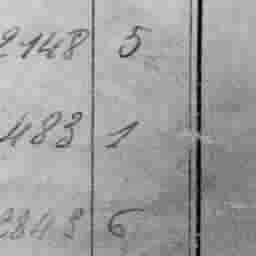 2148 5
483 1
2843 6